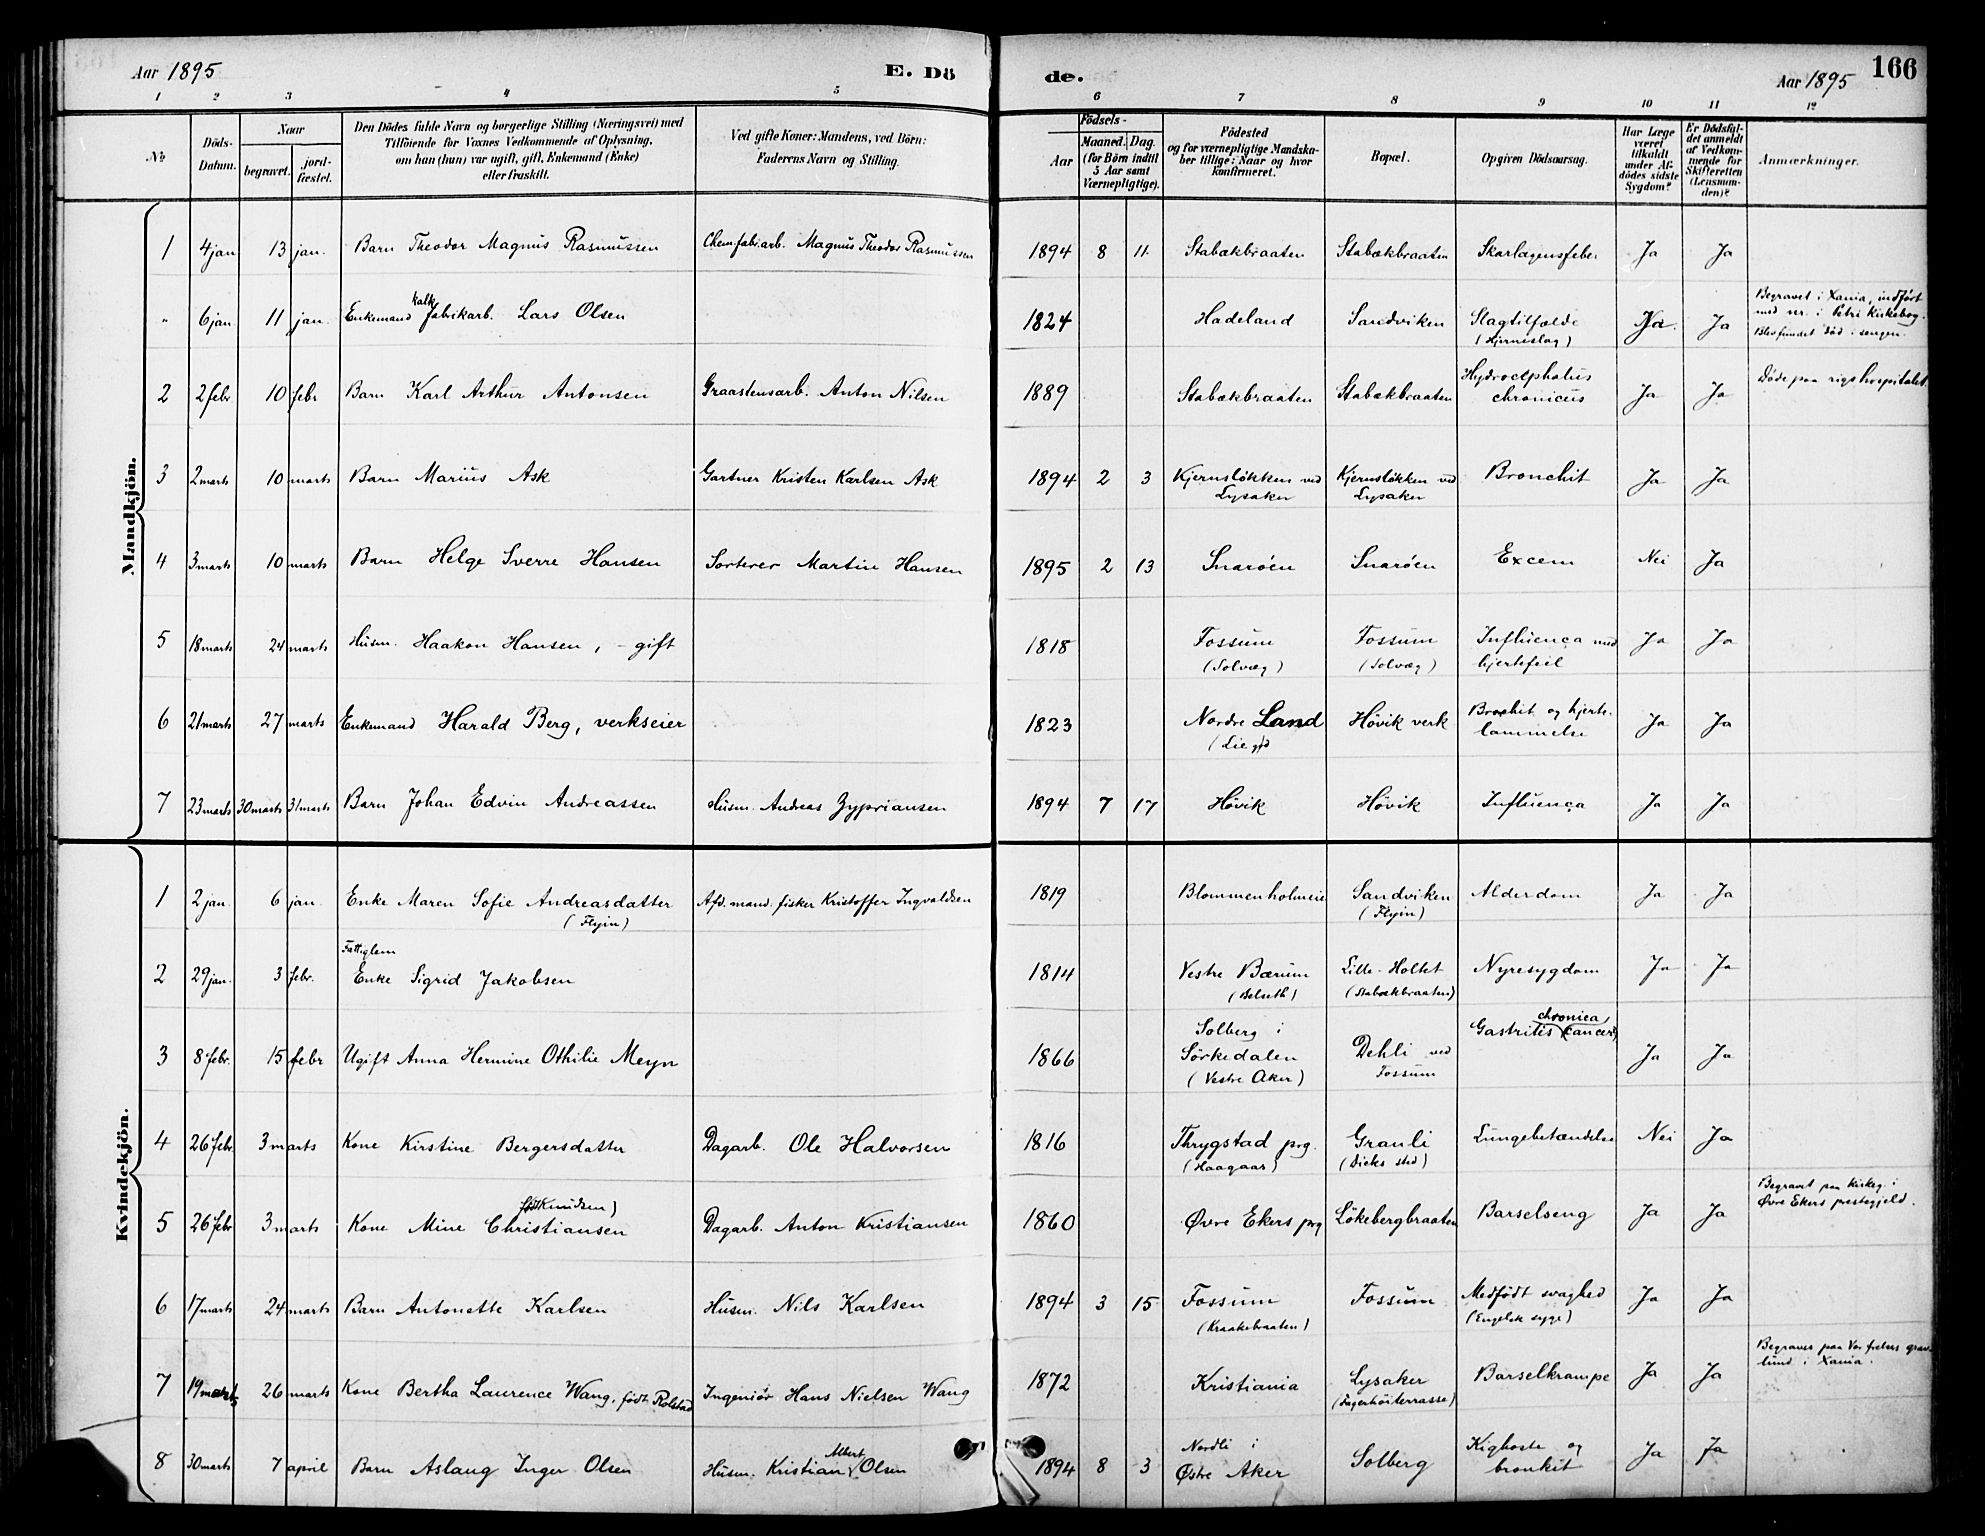 Aar 1895
E. Dö
de.
Aar 1895
166
1 2 3 4 5 6 7 8 9 10 11 12
№
Döds-Datum.
Naar
begravet.
jord-fæstet.
Den Dödes fulde Navn og borgerlige Stilling (Næringsvei) med
Tilföiende for Voxnes Vedkommende af Oplysning,
om han (hun) var ugift, gift, Enkemand (Enke)
eller fraskilt.
Ved gifte Koner: Mandens, ved Börn:
Faderens Navn og Stilling.
Födsels-
Aar
Maaned. Dag.
(for Börn indtil
5 Aar samt
Værnepligtige).
Födested
og for værnepligtige Mandska-
ber tillige: Naar og hvor
konfirmeret.
Bopæl.
Opgiven Dödsaarsag.
Har Læge
været
tilkaldt
under Af-
dödes sidste
Sygdom?
Er Dödsfal-
det anmeldt
af Vedkom-
mende for
Skifteretten
(Lensman-
den)?
Anmærkninger.
Mandkjön.
1 4 jan 13 jan. Barn Theodor Magnus Rasmussen Chem.fabr.arb. Magnus Theodor Rasmussen 1894 8 11. Stabækbraaten Stabækbraaten Skarlagensfeber Ja Ja
" 6 jan. 11 jan. Enkemand kalkfabrikarb. Lars Olsen 1824 Hadeland Sandviken Slagtilfælde (Hjerneslag) Ja
Begravet i Xania, indført
med nr. i Petri kirkebog.
Blev fundet død i sengen.
2 2 febr 10 febr Barn Karl Arthur Antonsen Graastensarb. Anton Nilsen 1889 Stabækbraaten Stabækbraaten Hydrocephalus chronicus Ja Ja Døde paa rigshospitalet.
3 2 marts 10 marts Barn Marius Ask Gartner Kristen Karlsen Ask 1894 2 3 Kjernsløkken ved Lysaker Kjernsløkken ved Lysaker Bronchit Ja Ja
4 3 marts 10 marts Barn Helge Sverre Hansen Sorterer Martin Hansen 1895 2 13 Snarøen Snarøen Excem Nei Ja
5 18 marts 24 marts Husm. Haakon Hansen, - gift 1818 Fossum (Solvæg) Fossum (Solvæg) Influença med hjertefeil Ja Ja
6 21 marts 27 marts Enkemand Harald Berg, verkseier 1823 Nordre Land Høvik verk Bronkit og hjerte-lammelse Ja Ja
7 23 marts 30 marts 31 marts Barn Johan Edvin Andreassen Husm. Andreas Zypriansen 1894 7 17 Høvik Høvik Influença Ja Ja
Kvindekjön.
1 2 jan. 6 jan. Enke Maren Sofie Andreasdatter (Flyin) Afd. mand: fisker Kristoffer Ingvaldsen 1819 Blommenholmeie Sandviken (Flyin) Alderdom Ja Ja
2 29 jan. 3 febr. Fattiglem Enke Sigrid Jakobsen 1814 Vestre Bærum (Belseth) Lille-Holtet (Stabækbraaten) Nyresygdom Ja Ja
3 8 febr. 15 febr Ugift Anna Hermine Othilie Meyn 1866 Solberg i Sørkedalen (Vestre Aker) Dehli ved Fossum Gastritis chronica, (cancer) Ja Ja
4 26 febr. 3 marts Kone Kirstine Bergersdatter Dagarb. Ole Halvorsen 1816 Thrygstad prg. (Haagaas) Granli (Dicks sted) Lungebetændelse Nei Ja
5 26 febr 3 marts Kone Mine Christiansen (født Knudsen) Dagarb. Anton Kristiansen 1860 Øvre Ekers prg Løkebergbraaten Barselseng Ja Ja
Begravet paa kirkeg. i
Øvre Ekers prestegjeld.
6 17 marts 24 marts Barn Antonette Karlsen Husm. Nils Karlsen 1894 3 15 Fossum (Kraakebraaten) Fossum Medfødt svaghed (Engelsk syge) Ja Ja
7 19 marts 26 marts Kone Bertha Laurence Wang, født Rolstad Ingeniør Hans Nielsen Wang 1872 Kristiania Lysaker (Fagerhøiterrasse) Barselkrampe Ja Ja
Begraves paa Vor frelsers grav-
lund i Xania.
8 30 marts 7 april Barn Aslaug Inger Olsen Husm. Kristian Albert Olsen 1894 8 3 Nordli i Østre Aker Solberg Kighoste og bronkit Ja Ja